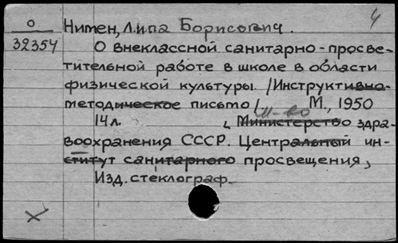 О Нимен, Липа Борисович. 4
32354 О внеклассной санитарно-просве-
тительной работе в школе в области
физической культуры. /Инструктивно-
методическое письмо/ М., 1950
м-во
14 л. , Министерство здра-
воохранения СССР. Центральный ин-
ститут санитарного просвещения,
Изд. стеклограф.